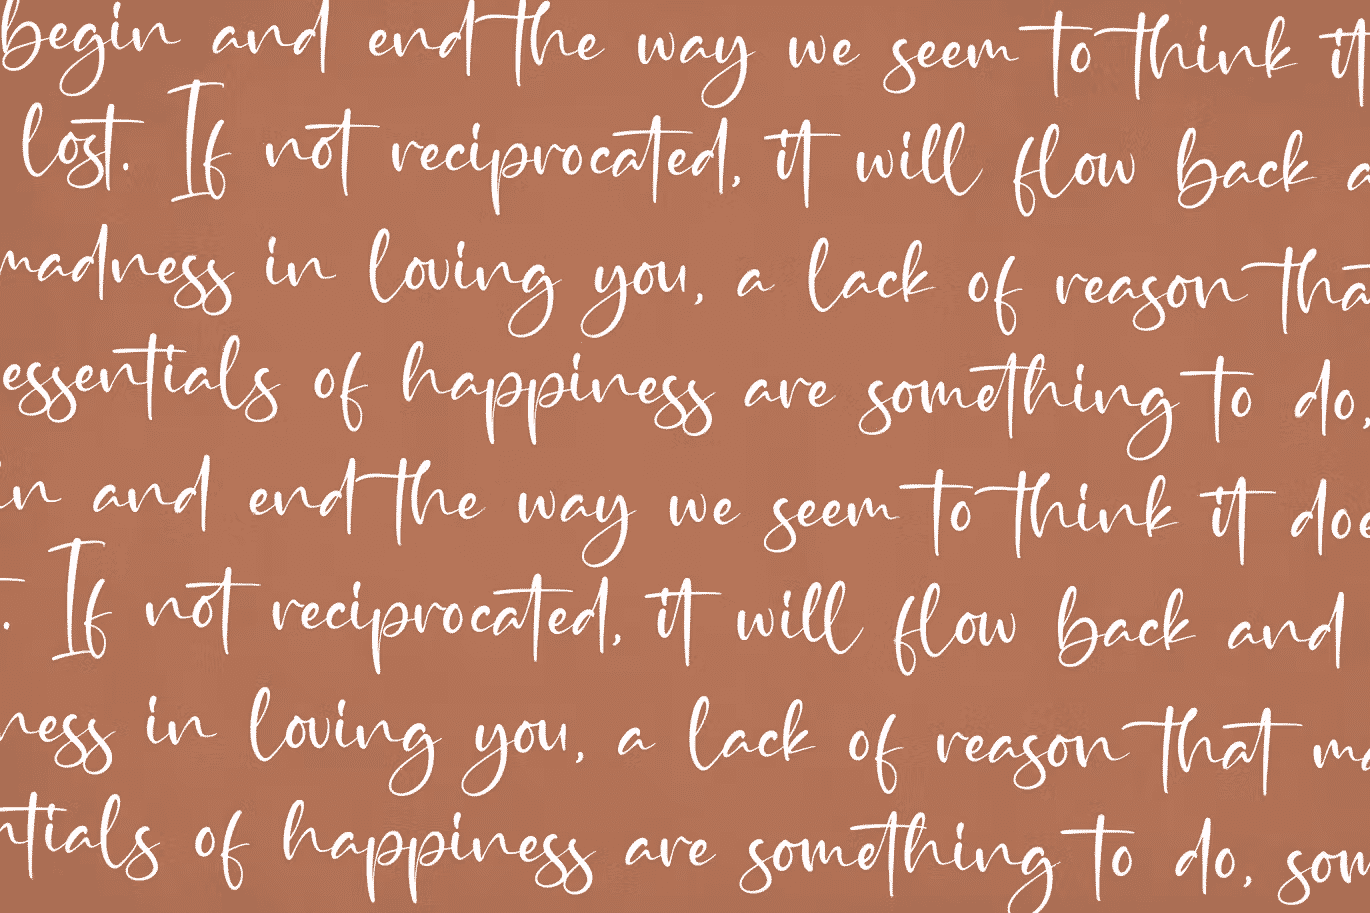 begin and end the way we seem to think it
lost. If not reciprocated, it will flow back a
madness in loving you, a lack of reason tha
essentials of happiness are something to do,
in and end the way we seem to think it doe
. If not reciprocated, it will flow back and
ness in loving you, a lack of reason that ma
ntials of happiness are something to do, som